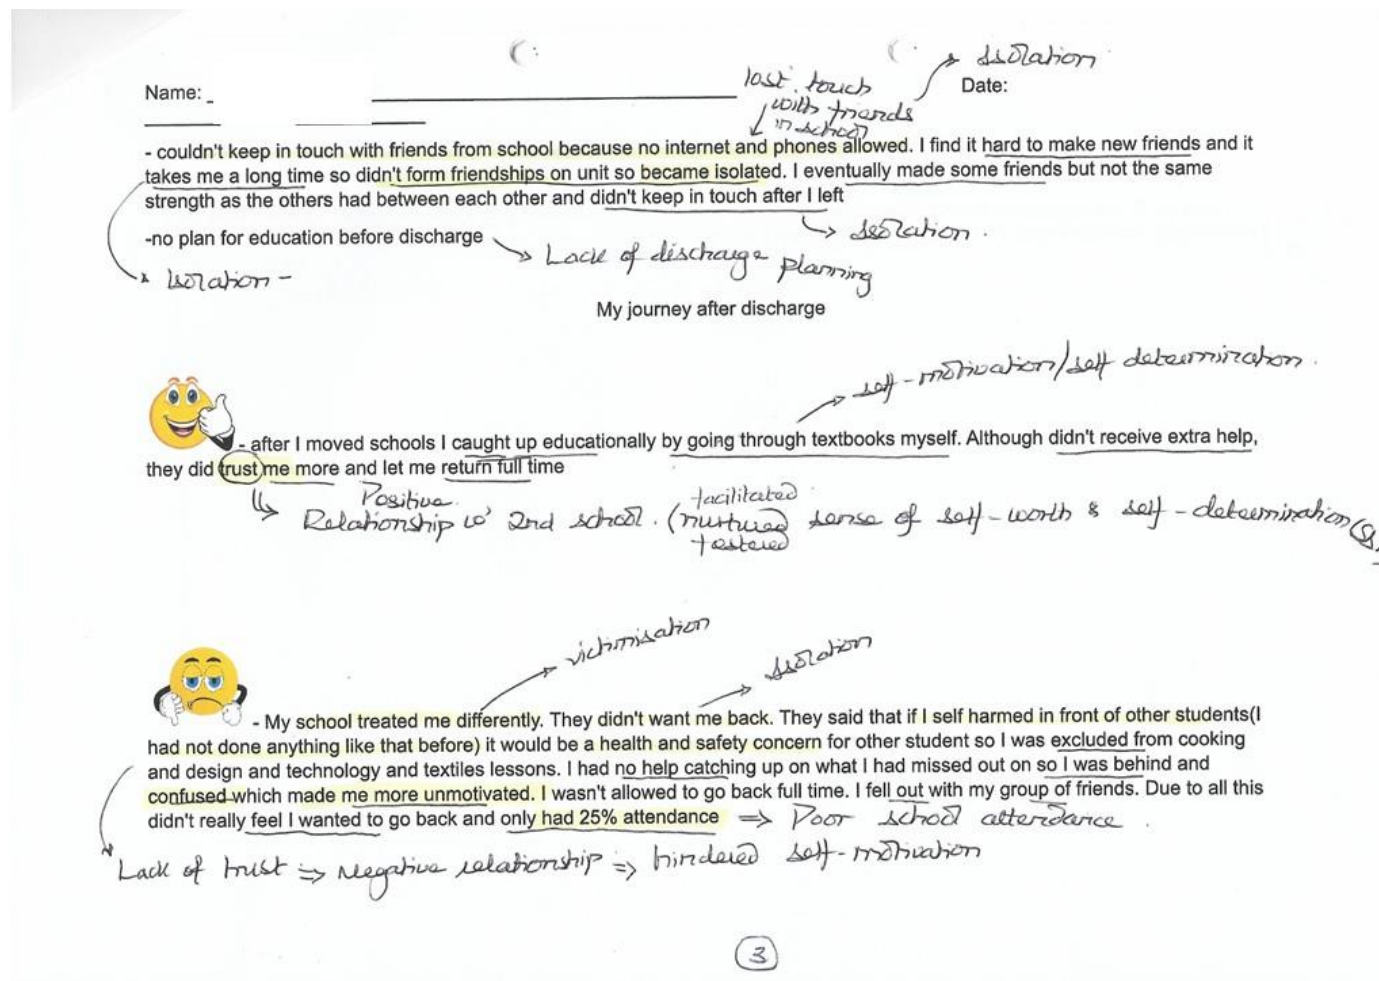 Isolation
lost touch
Name: _ Date:
with friends
in school
- couldn't keep in touch with friends from school because no internet and phones allowed. I find it hard to make new friends and it
takes me a long time so didn't form friendships on unit so became isolated. I eventually made some friends but not the same
strength as the others had between each other and didn't keep in touch after I left
Isolation.
-no plan for education before discharge
Lack of discharge planning
Isolation -
My journey after discharge
self-motivation/self determination.
- after I moved schools I caught up educationally by going through textbooks myself. Although didn't receive extra help,
they did trust me more and let me return full time
Positive
Relationship w' 2nd school. (nurtured sense of self-worth & self-determination
facilitated
fostered
victimisation
Isolation
- My school treated me differently. They didn't want me back. They said that if I self harmed in front of other students(I
had not done anything like that before) it would be a health and safety concern for other student so I was excluded from cooking
and design and technology and textiles lessons. I had no help catching up on what I had missed out on so I was behind and
confused which made me more unmotivated. I wasn't allowed to go back full time. I fell out with my group of friends. Due to all this
didn't really feel I wanted to go back and only had 25% attendance ⇒ Poor school attendance.
Lack of trust ⇒ Negative relationship ⇒ hindered self-motivation
3